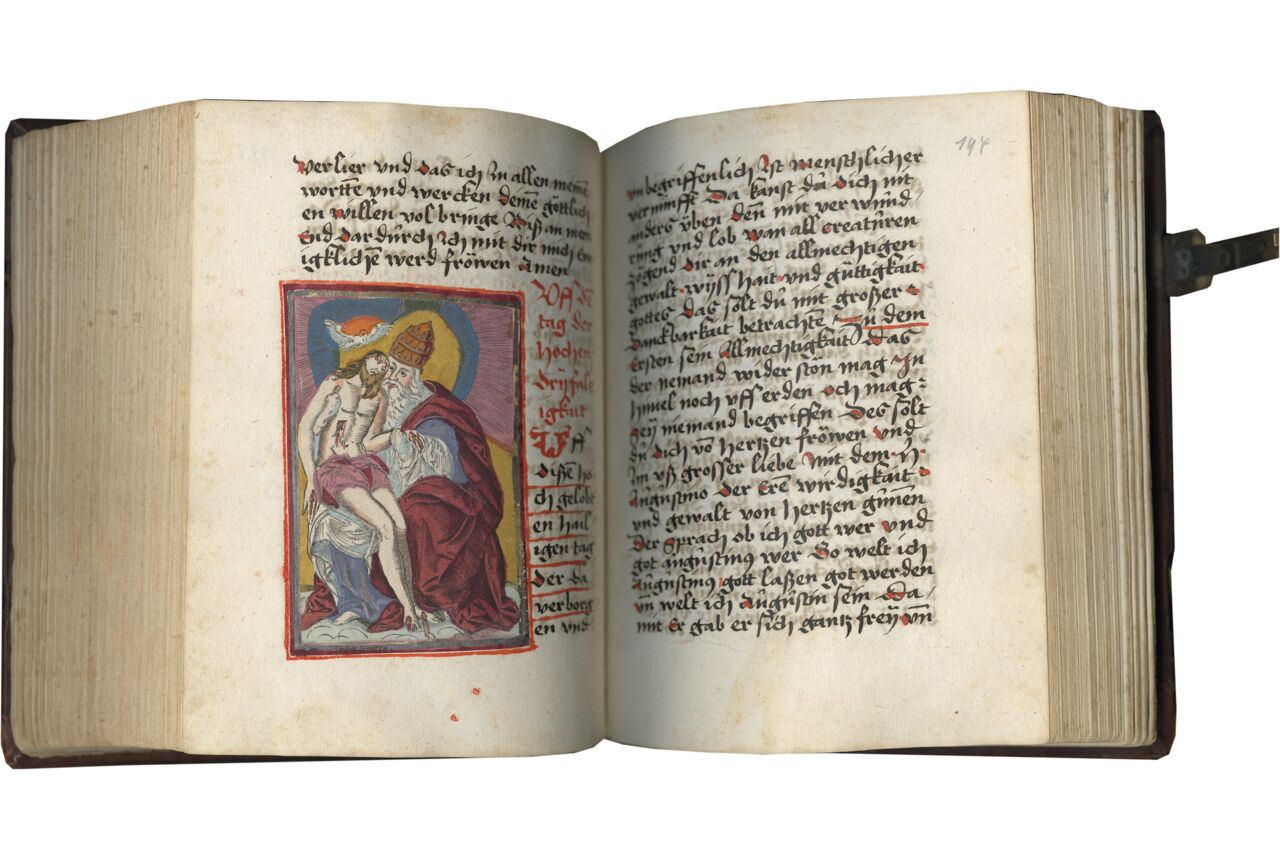 verlier vnd das ich in allen meinē
wortten vnd wercken deinē göttlich
en willen vol bringe Biß an mein
End dar dürch ich mit dir mich Ew
igklichē werd fröwen Amen
Vff den
tag der
hochen
dryfalt
igkait
Vff
dißē ho
ch gelobt
en hail
igen tag
der da
verborg
en vnd
197
vnbegriffenlich ist menschlicher
vernunfft Da kanst du dich nit
anders üben den mit verwund
rung vnd lob wan all creatüren
zögend dir an den allmechtigen
gewalt wyßhait vnd güttigkait
gottes das solt dü mit großer
danckbarkait betrachtē Zü dem
Ersten sein Allmechtigkait Das
der niemand wider stön mag In
himel noch vff erden och mag
sey niemand begriffen Des solt
du dich vō hertzen fröwen vnd
Im vß grosser liebe mit dem h.
Augustino der Erē wirdigkait
vnd gewalt von hertzen günnen
der sprach ob ich gott wer vnd
got augustinus wer So welt ich
Augustinus gott laßen got werden
vn̄ welt ich Augustin sein Da
mit Er gab er sich gantz frey vn̄